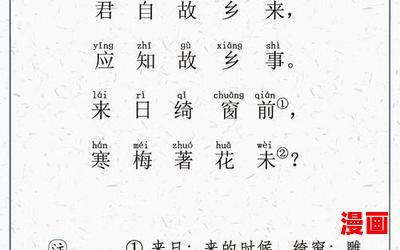 君自故乡来，
yīng zhī gù xiāng shì
应知故乡事。
lái rì qǐ chuāng qián
来日绮窗前①，
hán méi zhuó huā wèi
寒梅著花未②？
漫画
① 来日：来的时候。绮窗：雕